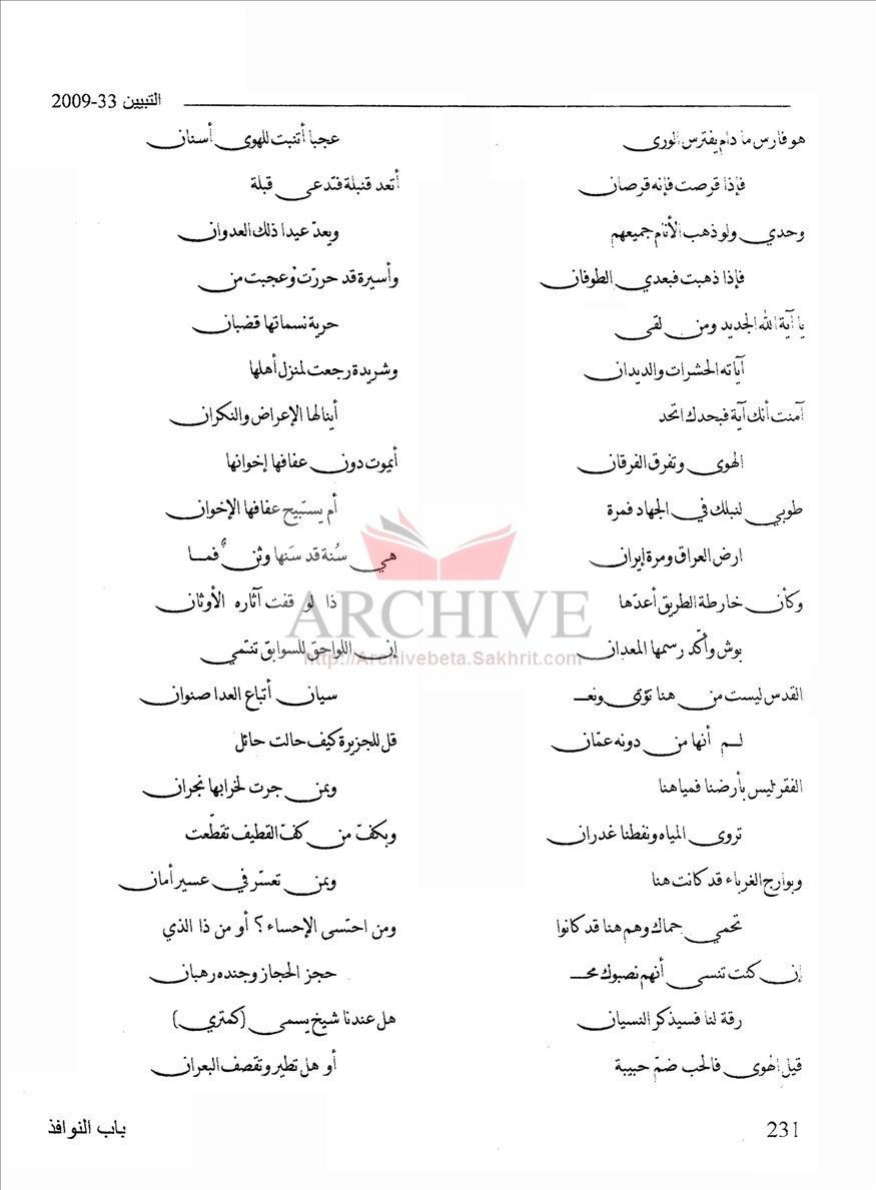 التبيين 33-2009
هو فارس ما دام يفترس الورى
فإذا قرصت فإنه قرصان
وحدي ولو ذهب الأنام جميعهم
فإذا ذهبت فبعدي الطوفان
يا آية الله الجديد ومن لقى
آياته الحشرات والديدان
آمنت أنك آية فبحدك اتحد
الهوى وتفرق الفرقان
طوبى لنبلك في الجهاد فمرة
ارض العراق ومرة إيران
وكأن خارطة الطريق أعدّها
بوش وأكّد رسمها المعدان
القدس ليست من هنا تؤتى ونعـ
لم أنها من دونه عمّان
الفقر ليس بأرضنا فمياهنا
تروى المياه ونفطنا غدران
وبوارج الغرباء قد كانت هنا
تحمي حماك وهم هنا قد كانوا
إن كنت تنسى أنهم نصبوك محـ
رقة لنا فسيذكر النسيان
قيل الهوى فالحب ضمّ حبيبة
عجبا أتنبت للهوى أسنان
أتعد قنبلة فتدعى قبلة
ويعدّ عيدا ذلك العدوان
وأسيرة قد حررّت وُعجبت من
حرية نسماتها قضبان
وشريدة رجعت لمنزل أهلها
أينالها الإعراض والنكران
أيموت دون عفافها إخوانها
أم يستبيح عفافها الإخوان
هي سُنة قد سَنها وثن فمـا
ذا لو قفت آثاره الأوثان
إن اللواحق للسوابق تنتمي
سيان أتباع العدا صنوان
قل للجزيرة كيف حالت حائل
وبمن جرت لخرابها نجران
وبكفّ من كفّ القطيف تقطّعت
وبمن تعسّر في عسير أمان
ومن احتسى الإحساء؟ أو من ذا الذي
حجز الحجاز وجنده رهبان
هل عندنا شيخ يسمى (كمتري)
أو هل تطير وتقصف البعران
ARCHIVE
http://Archivebeta.Sakhrit.com
231
باب النوافذ